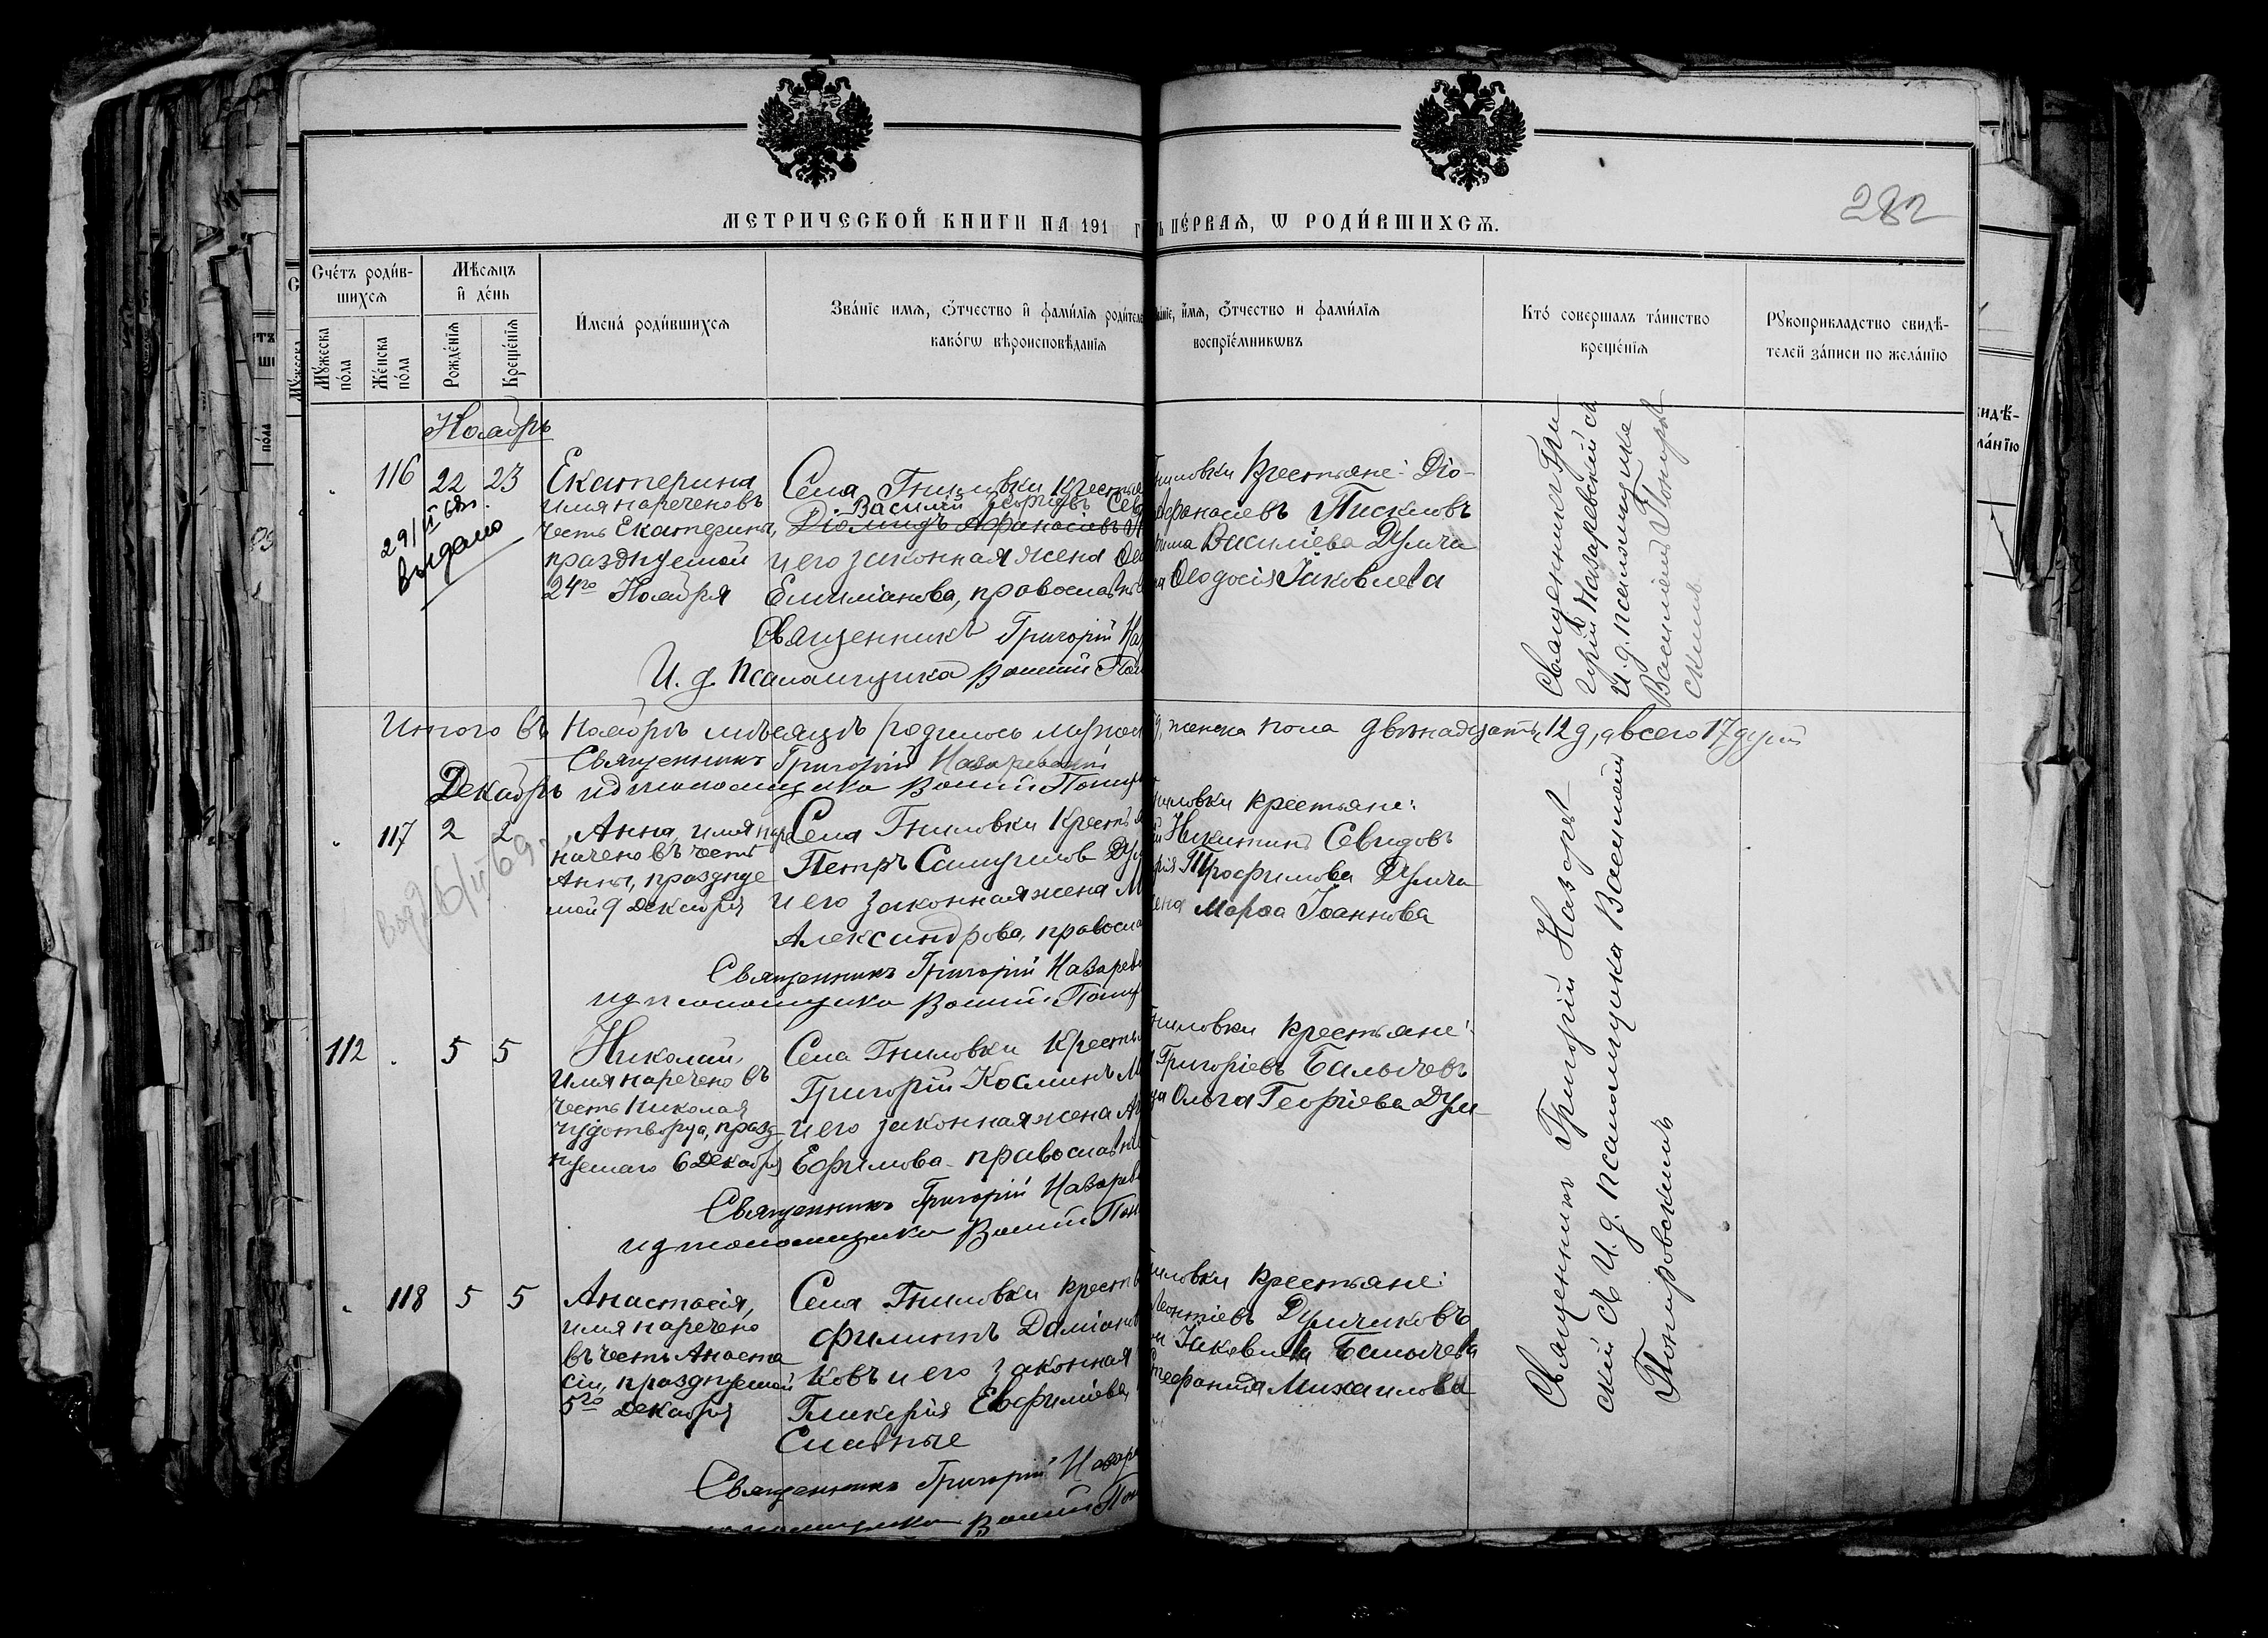 282
МЕТРИЧЕСКОЙ КНИГИ НА 191 Г
Ъ ПЕ́РВАЯ, Ѡ РОДИ́ВШИХСѦ.
Счётъ роди́в-
шихсѧ
Мѣсѧцъ
и҆ де́нь
Му́жеска
по́ла
Же́нска
по́ла
Рожде́нїѧ
Креще́нїѧ
Имена́ роди́вшихсѧ
Зва́нїе имѧ, ѻ҆́тчество и҆ фами́лїѧ роди́теле
како́гѡ вѣроисповѣ́данїѧ
ванїе, и҆́мѧ, ѻ҆́тчество и фами́лїѧ
воспрїе́мникѡвъ
Кто́ совершалъ та́инство
креще́нїѧ
Рꙋкоприкладство свидѣ́-
телей за́писи по жела́нїю
Ноябрь
116 22 23
29/II 68г.
выдано
Екатерина
имя наречено въ
честь Екатерины,
празднуемой
24го Ноября
Села Гниловки крестья
Василій Георгіевъ Сев
Діомидъ Афанасіевъ
и его законная жена Ѳео
Емиліанова, православные
Священникъ Григорій Наз
И. д. псаломщика Василій Пон
ниловки крестьяне: Діо-
Афанасіевъ Пискловъ
Василіева Думчи
на Ѳеодосія Іаковлева
Священникъ Гри-
горій Назаревскій съ
и. д. псаломщика
Василіемъ Поныров-
скимъ
Итого въ Ноябрѣ мѣсяцѣ родилось мужск
женска пола двѣнадцать, 12 д, а всего 17 душъ
Священникъ Григорій Назаревскій
Декабрь ид псаломщика Василій Поныр
117 2 2
выд. 6/II 69г.
Анна, имя наре
чено въ честь
Анны, праздnуе
мой 9 декабря
Села Гниловки кресть
Петръ Самуиловъ Ду
и его законная жена М
Александрова, правосла
Священникъ Григорій Назарев
ид псаломщика Василій Поныр
ниловки крестьяне:
Никитинъ Севидовъ
Трофимова Думчи
ена Марѳа Іоаннова
112 5 5
Николай,
имя наречено въ
честь Николая
чудотворца, празд-
нуемаго 6 Декабря
Села Гниловки Кресть
Григорій Косминъ М
и его законная жена
Ефимова православны
Священникъ Григорій Назарев
ид псаломщика Василій Пон
ниловки крестьяне:
Григоріевъ Балычевъ
Ольга Георгіева Дум-
118 5 5
Анастасія,
имя наречено
въ честь Анаста
сіи, празднуемой
5го декабря
Села Гниловки крестья
Филиппъ Даміанов
ковъ и его законная
Гликерія Евфиміева,
славные
Священникъ Григорій Назаре
псаломщика Василій Пон
ниловки крестьяне:
Леонтіевъ Думчиковъ
Іаковлева Балычева
Стефанида Михаилова
Священникъ Григорій Назарев-
скій съ И. д. псаломщика Василіемъ
Поныровскимъ